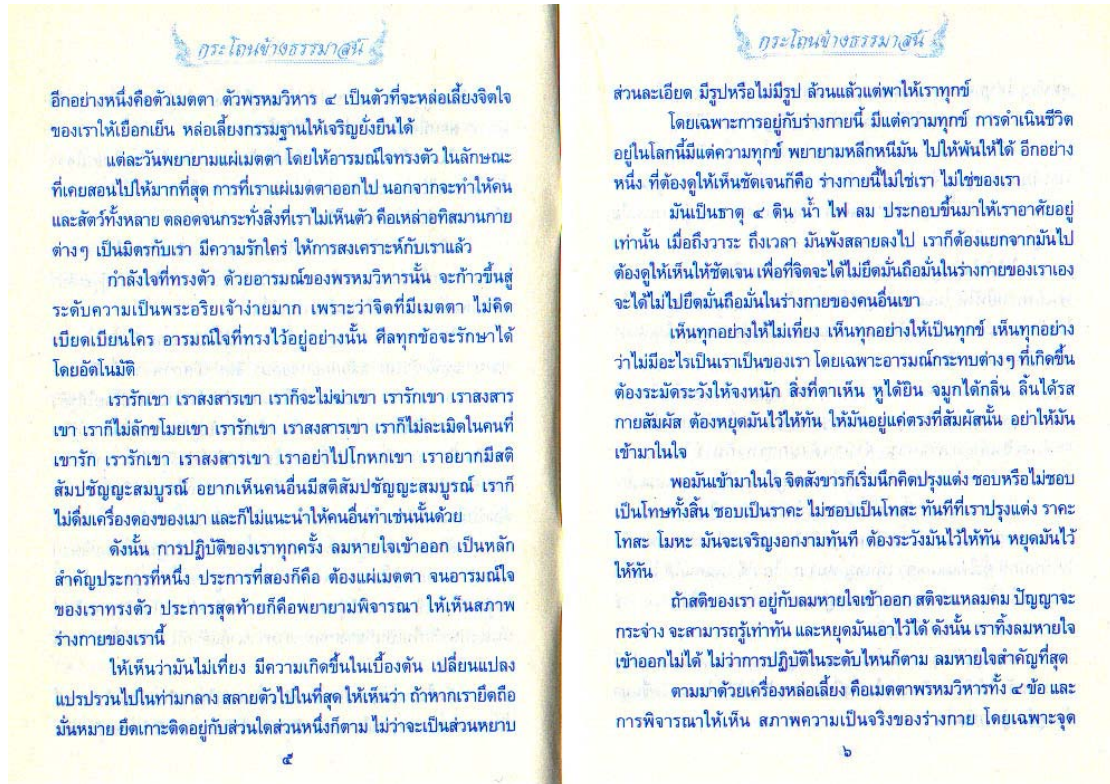 กระโถนข้างธรรมาสน์
อีกอย่างหนึ่งคือตัวเมตตา ตัวพรหมวิหาร ๔ เป็นตัวที่จะหล่อเลี้ยงจิตใจ
ของเราให้เยือกเย็น หล่อเลี้ยงกรรมฐานให้เจริญยั่งยืนได้
แต่ละวันพยายามแผ่เมตตา โดยให้อารมณ์ใจทรงตัว ในลักษณะ
ที่เคยสอนไปให้มากที่สุด การที่เราแผ่เมตตาออกไป นอกจากจะทำให้คน
และสัตว์ทั้งหลาย ตลอดจนกระทั่งสิ่งที่เราไม่เห็นตัว คือเหล่าอทิสมานกาย
ต่างๆ เป็นมิตรกับเรา มีความรักใคร่ ให้การสงเคราะห์กับเราแล้ว
กำลังใจที่ทรงตัว ด้วยอารมณ์ของพรหมวิหารนั้น จะก้าวขึ้นสู่
ระดับความเป็นพระอริยเจ้าง่ายมาก เพราะว่าจิตที่มีเมตตา ไม่คิด
เบียดเบียนใคร อารมณ์ใจที่ทรงไว้อยู่อย่างนั้น ศีลทุกข้อจะรักษาได้
โดยอัตโนมัติ
เรารักเขา เราสงสารเขา เราก็จะไม่ฆ่าเขา เรารักเขา เราสงสาร
เขา เราก็ไม่ลักขโมยเขา เรารักเขา เราสงสารเขา เราก็ไม่ละเมิดในคนที่
เขารัก เรารักเขา เราสงสารเขา เราอย่าไปโกหกเขา เราอยากมีสติ
สัมปชัญญะสมบูรณ์ อยากเห็นคนอื่นมีสติสัมปชัญญะสมบูรณ์ เราก็
ไม่ดื่มเครื่องดองของเมา และก็ไม่แนะนำให้คนอื่นทำเช่นนั้นด้วย
ดังนั้น การปฏิบัติของเราทุกครั้ง ลมหายใจเข้าออก เป็นหลัก
สำคัญประการที่หนึ่ง ประการที่สองก็คือ ต้องแผ่เมตตา จนอารมณ์ใจ
ของเราทรงตัว ประการสุดท้ายก็คือพยายามพิจารณา ให้เห็นสภาพ
ร่างกายของเรานี้
ให้เห็นว่ามันไม่เที่ยง มีความเกิดขึ้นในเบื้องต้น เปลี่ยนแปลง
แปรปรวนไปในท่ามกลาง สลายตัวไปในที่สุด ให้เห็นว่า ถ้าหากเรายึดถือ
มั่นหมาย ยึดเกาะติดอยู่กับส่วนใดส่วนหนึ่งก็ตาม ไม่ว่าจะเป็นส่วนหยาบ
๕
กระโถนข้างธรรมาสน์
ส่วนละเอียด มีรูปหรือไม่มีรูป ล้วนแล้วแต่พาให้เราทุกข์
โดยเฉพาะการอยู่กับร่างกายนี้ มีแต่ความทุกข์ การดำเนินชีวิต
อยู่ในโลกนี้มีแต่ความทุกข์ พยายามหลีกหนีมัน ไปให้พ้นให้ได้ อีกอย่าง
หนึ่ง ที่ต้องดูให้เห็นชัดเจนก็คือ ร่างกายนี้ไม่ใช่เรา ไม่ใช่ของเรา
มันเป็นธาตุ ๔ ดิน น้ำ ไฟ ลม ประกอบขึ้นมาให้เราอาศัยอยู่
เท่านั้น เมื่อถึงวาระ ถึงเวลา มันพังสลายลงไป เราก็ต้องแยกจากมันไป
ต้องดูให้เห็นให้ชัดเจน เพื่อที่จิตจะได้ไม่ยึดมั่นถือมั่นในร่างกายของเราเอง
จะได้ไม่ไปยึดมั่นถือมั่นในร่างกายของคนอื่นเขา
เห็นทุกอย่างให้ไม่เที่ยง เห็นทุกอย่างให้เป็นทุกข์ เห็นทุกอย่าง
ว่าไม่มีอะไรเป็นเราเป็นของเรา โดยเฉพาะอารมณ์กระทบต่างๆ ที่เกิดขึ้น
ต้องระมัดระวังให้จงหนัก สิ่งที่ตาเห็น หูได้ยิน จมูกได้กลิ่น ลิ้นได้รส
กายสัมผัส ต้องหยุดมันไว้ให้ทัน ให้มันอยู่แค่ตรงที่สัมผัสนั้น อย่าให้มัน
เข้ามาในใจ
พอมันเข้ามาในใจ จิตสังขารก็เริ่มนึกคิดปรุงแต่ง ชอบหรือไม่ชอบ
เป็นโทษทั้งสิ้น ชอบเป็นราคะ ไม่ชอบเป็นโทสะ ทันทีที่เราปรุงแต่ง ราคะ
โทสะ โมหะ มันจะเจริญงอกงามทันที ต้องระวังมันไว้ให้ทัน หยุดมันไว้
ให้ทัน
ถ้าสติของเรา อยู่กับลมหายใจเข้าออก สติจะแหลมคม ปัญญาจะ
กระจ่าง จะสามารถรู้เท่าทัน และหยุดมันเอาไว้ได้ ดังนั้น เราทิ้งลมหายใจ
เข้าออกไม่ได้ ไม่ว่าการปฏิบัติในระดับไหนก็ตาม ลมหายใจสำคัญที่สุด
ตามมาด้วยเครื่องหล่อเลี้ยง คือเมตตาพรหมวิหารทั้ง ๔ ข้อ และ
การพิจารณาให้เห็น สภาพความเป็นจริงของร่างกาย โดยเฉพาะจุด
๖